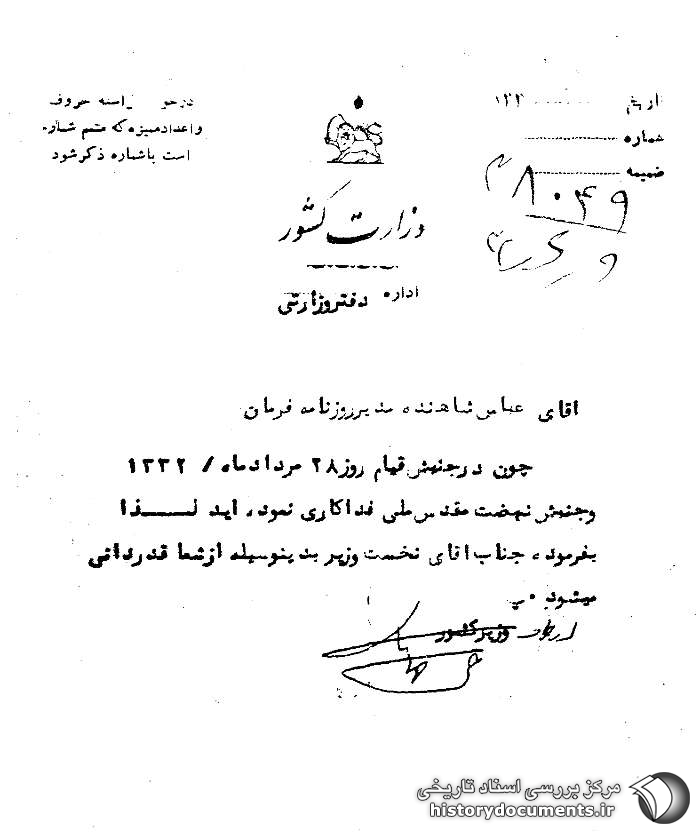 تاریخ ............ ۱۳۳
شماره
ضمیمه
۸۰۴۹
در جو اسنه حروف
و اعداد ممیزه که متمم شماره
است با شماره ذکر شود
وزارت کشور
اداره دفتر وزارتی
اقای عباس شاهنده مدیر روزنامه فرمان
چون در جنبش قیام روز ۲۸ مرداد ماه / ۱۳۳۲
و جنبش نهضت مقدس ملی فداکاری نموده اید لـــذا
بفرموده جناب اقای نخست وزیر بدینوسیله از شما قدردانی
میشود
از طرف وزیر کشور
مرکز بررسی اسناد تاریخی
historydocuments.ir